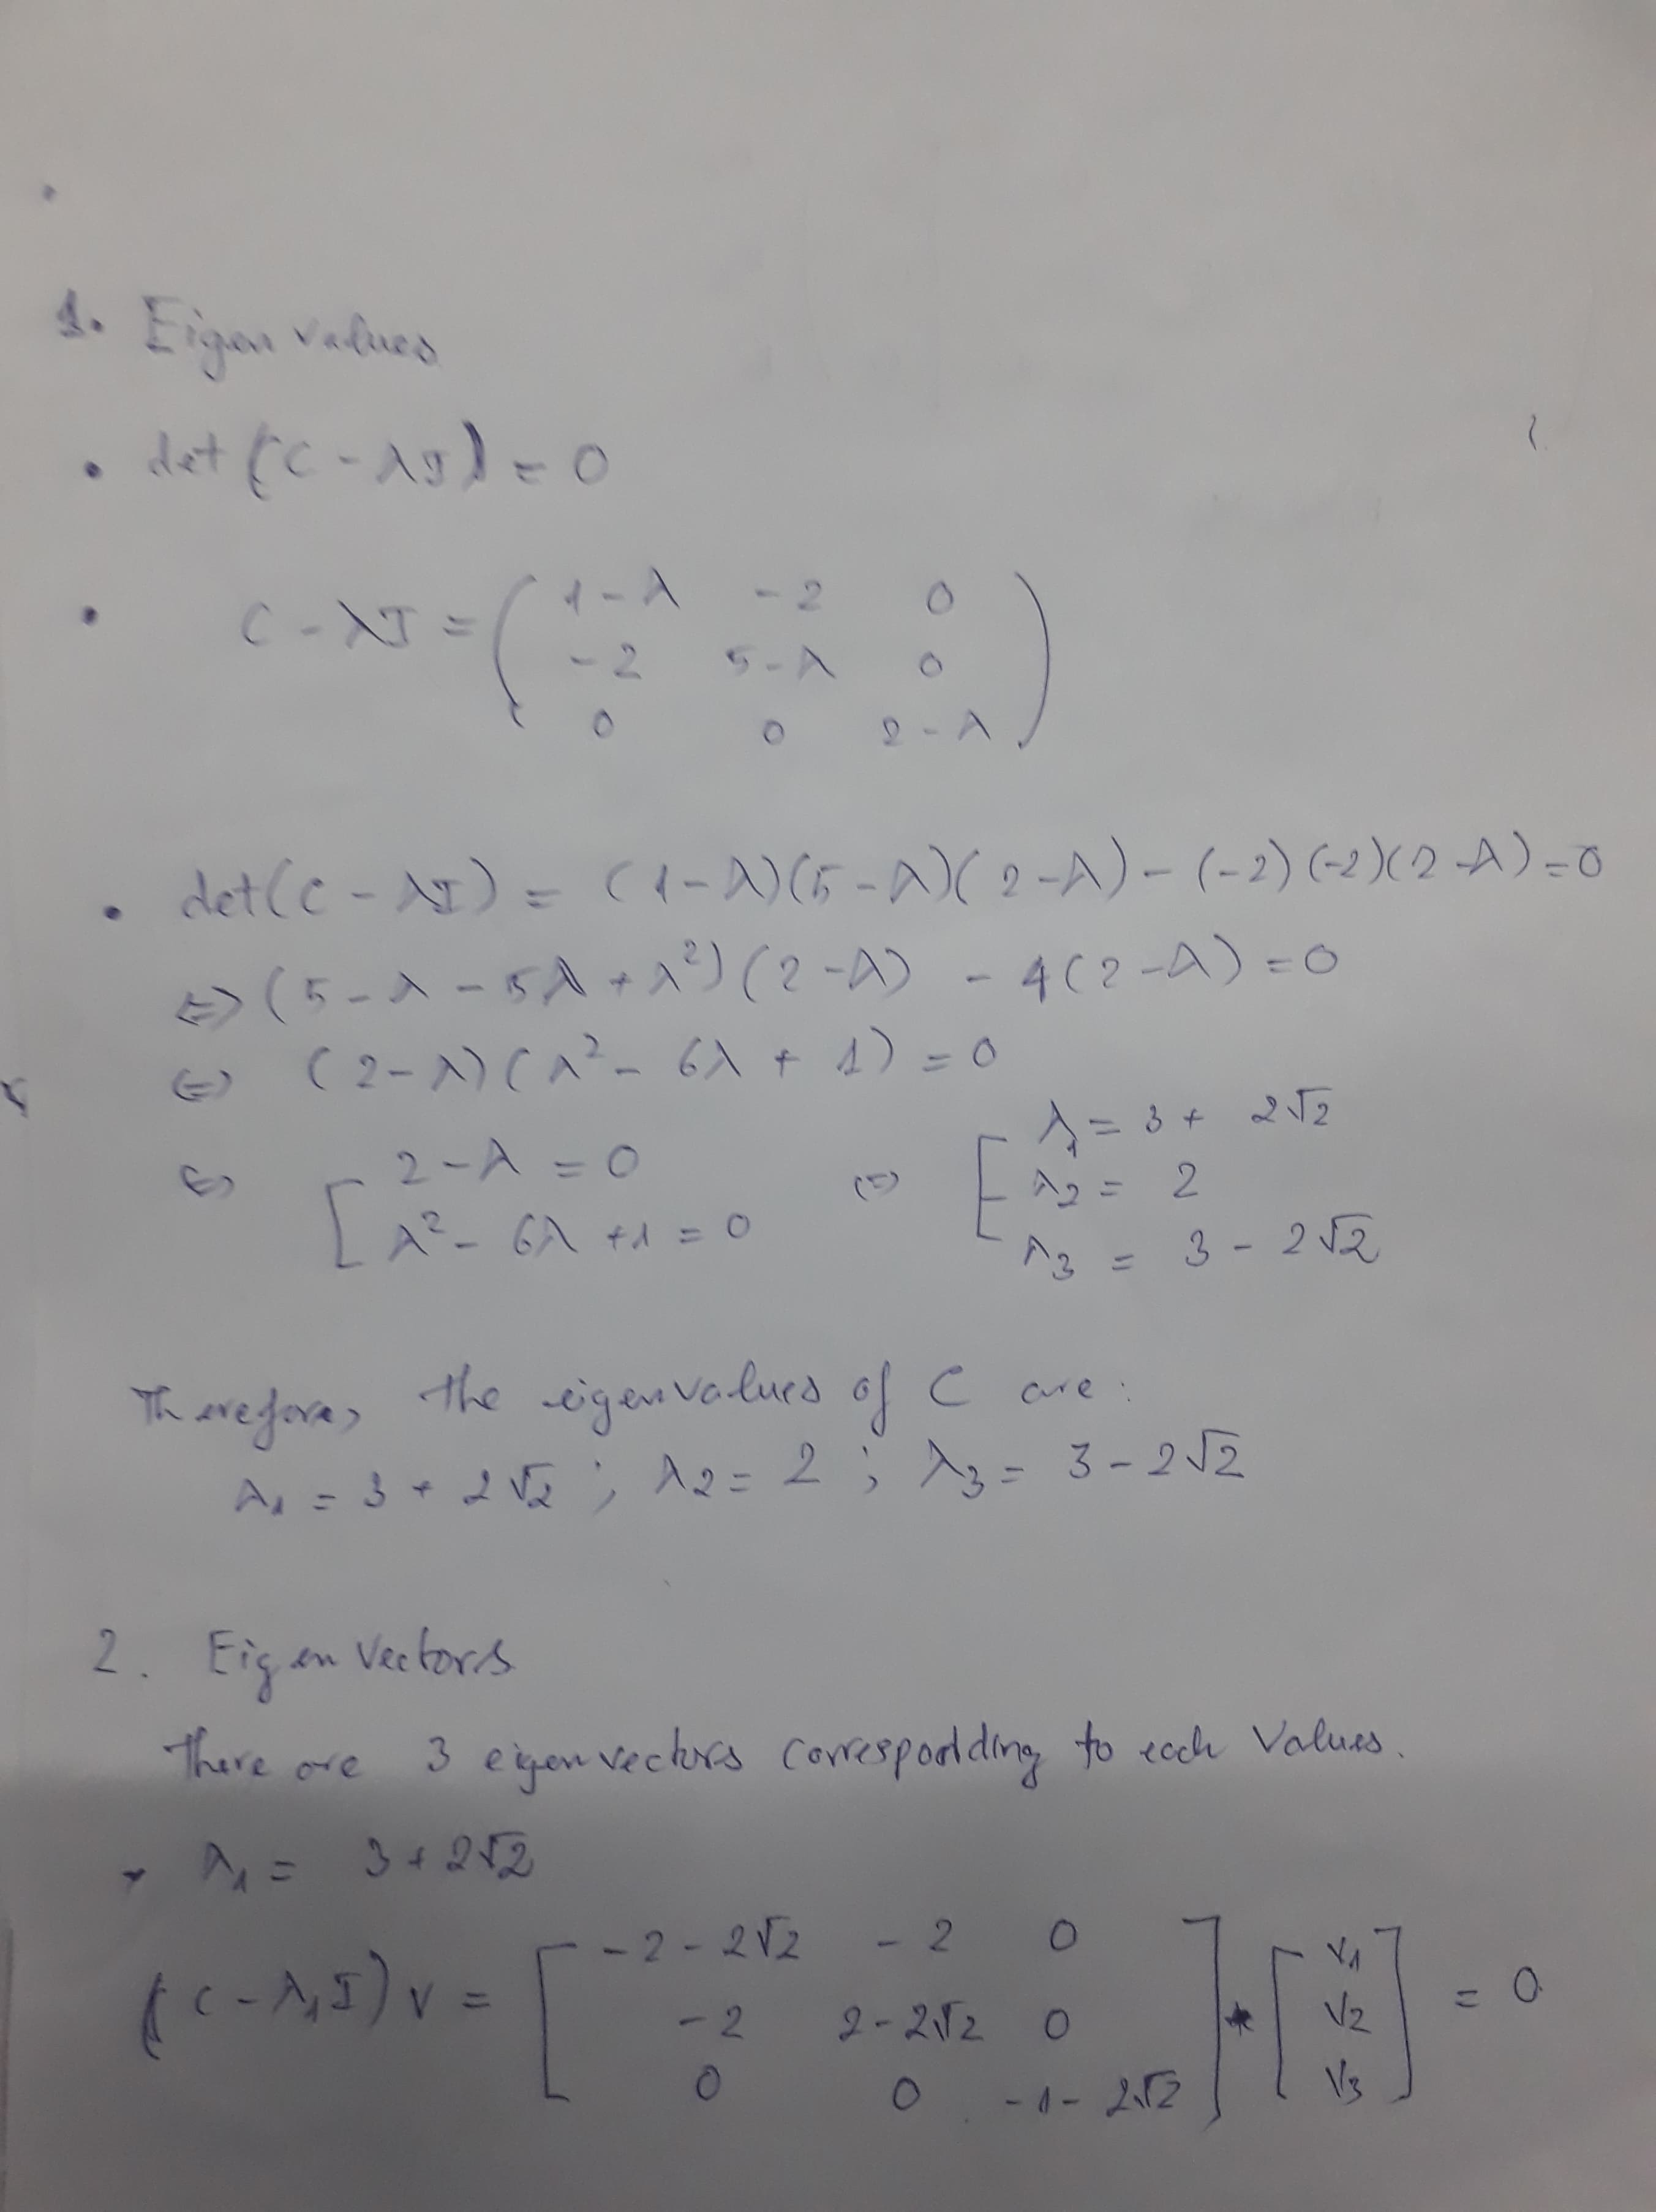 1. Eigen values
• det (C - λI) = 0
• C - λI = ( 1-λ -2 0
-2 5-λ 0
0 0 2-λ )
• det(C - λI) = (1-λ)(5-λ)(2-λ) - (-2)(-2)(2-λ) = 0
⇔ (5 - λ - 5λ + λ²)(2-λ) - 4(2-λ) = 0
⇔ (2-λ)(λ² - 6λ + 1) = 0
⇔ [ 2-λ = 0 ⇔ [ λ₁ = 3 + 2√2
λ² - 6λ + 1 = 0 λ₂ = 2
λ₃ = 3 - 2√2
Therefore, the eigenvalues of C are:
λ₁ = 3 + 2√2 ; λ₂ = 2 ; λ₃ = 3 - 2√2
2. Eigen Vectors
There are 3 eigenvectors correspondding to each Values.
λ₁ = 3 + 2√2
(C - λ₁I) v = [ -2-2√2 -2 0 ] * [ v₁ ] = 0
-2 2-2√2 0 v₂
0 0 -1-2√2 v₃